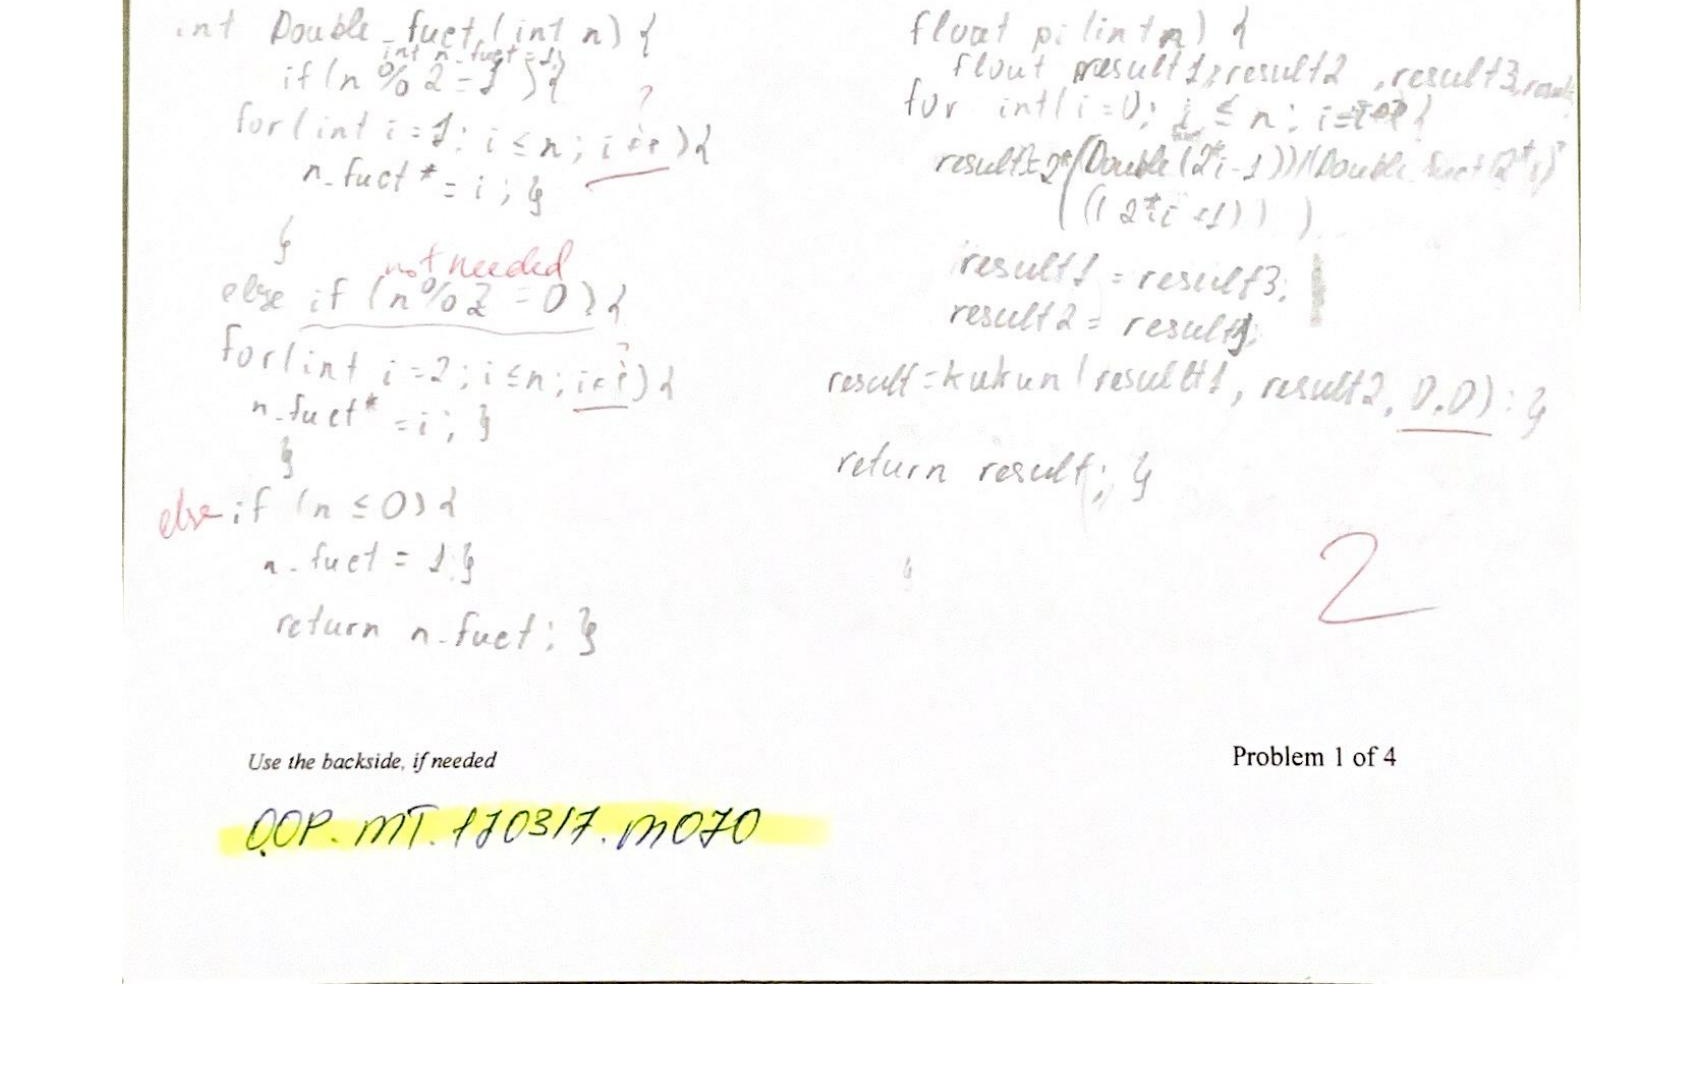 int Double_fuct(int n) {
int n_fuct = 1;
if (n % 2 = 1) {
?
for (int i = 1; i ≤ n; i++) {
n_fuct * = i; }
}
not needed
else if (n % 2 = 0) {
?
for (int i = 2; i ≤ n; i++) {
n_fuct * = i; }
}
else if (n ≤ 0) {
n_fuct = 1; }
return n_fuct; }
float pi (int n) {
float result1, result2, result3,
for int(i = 0; i ≤ n;
(Double(2*i-1))/(Double fuct(2*i)
((2*i+1)) )
result1 = result3;
result2 =
result = kukun(result1, result2, 0.0); }
return result; }
2
Use the backside, if needed
Problem 1 of 4
OOP. MT. 170317. M070